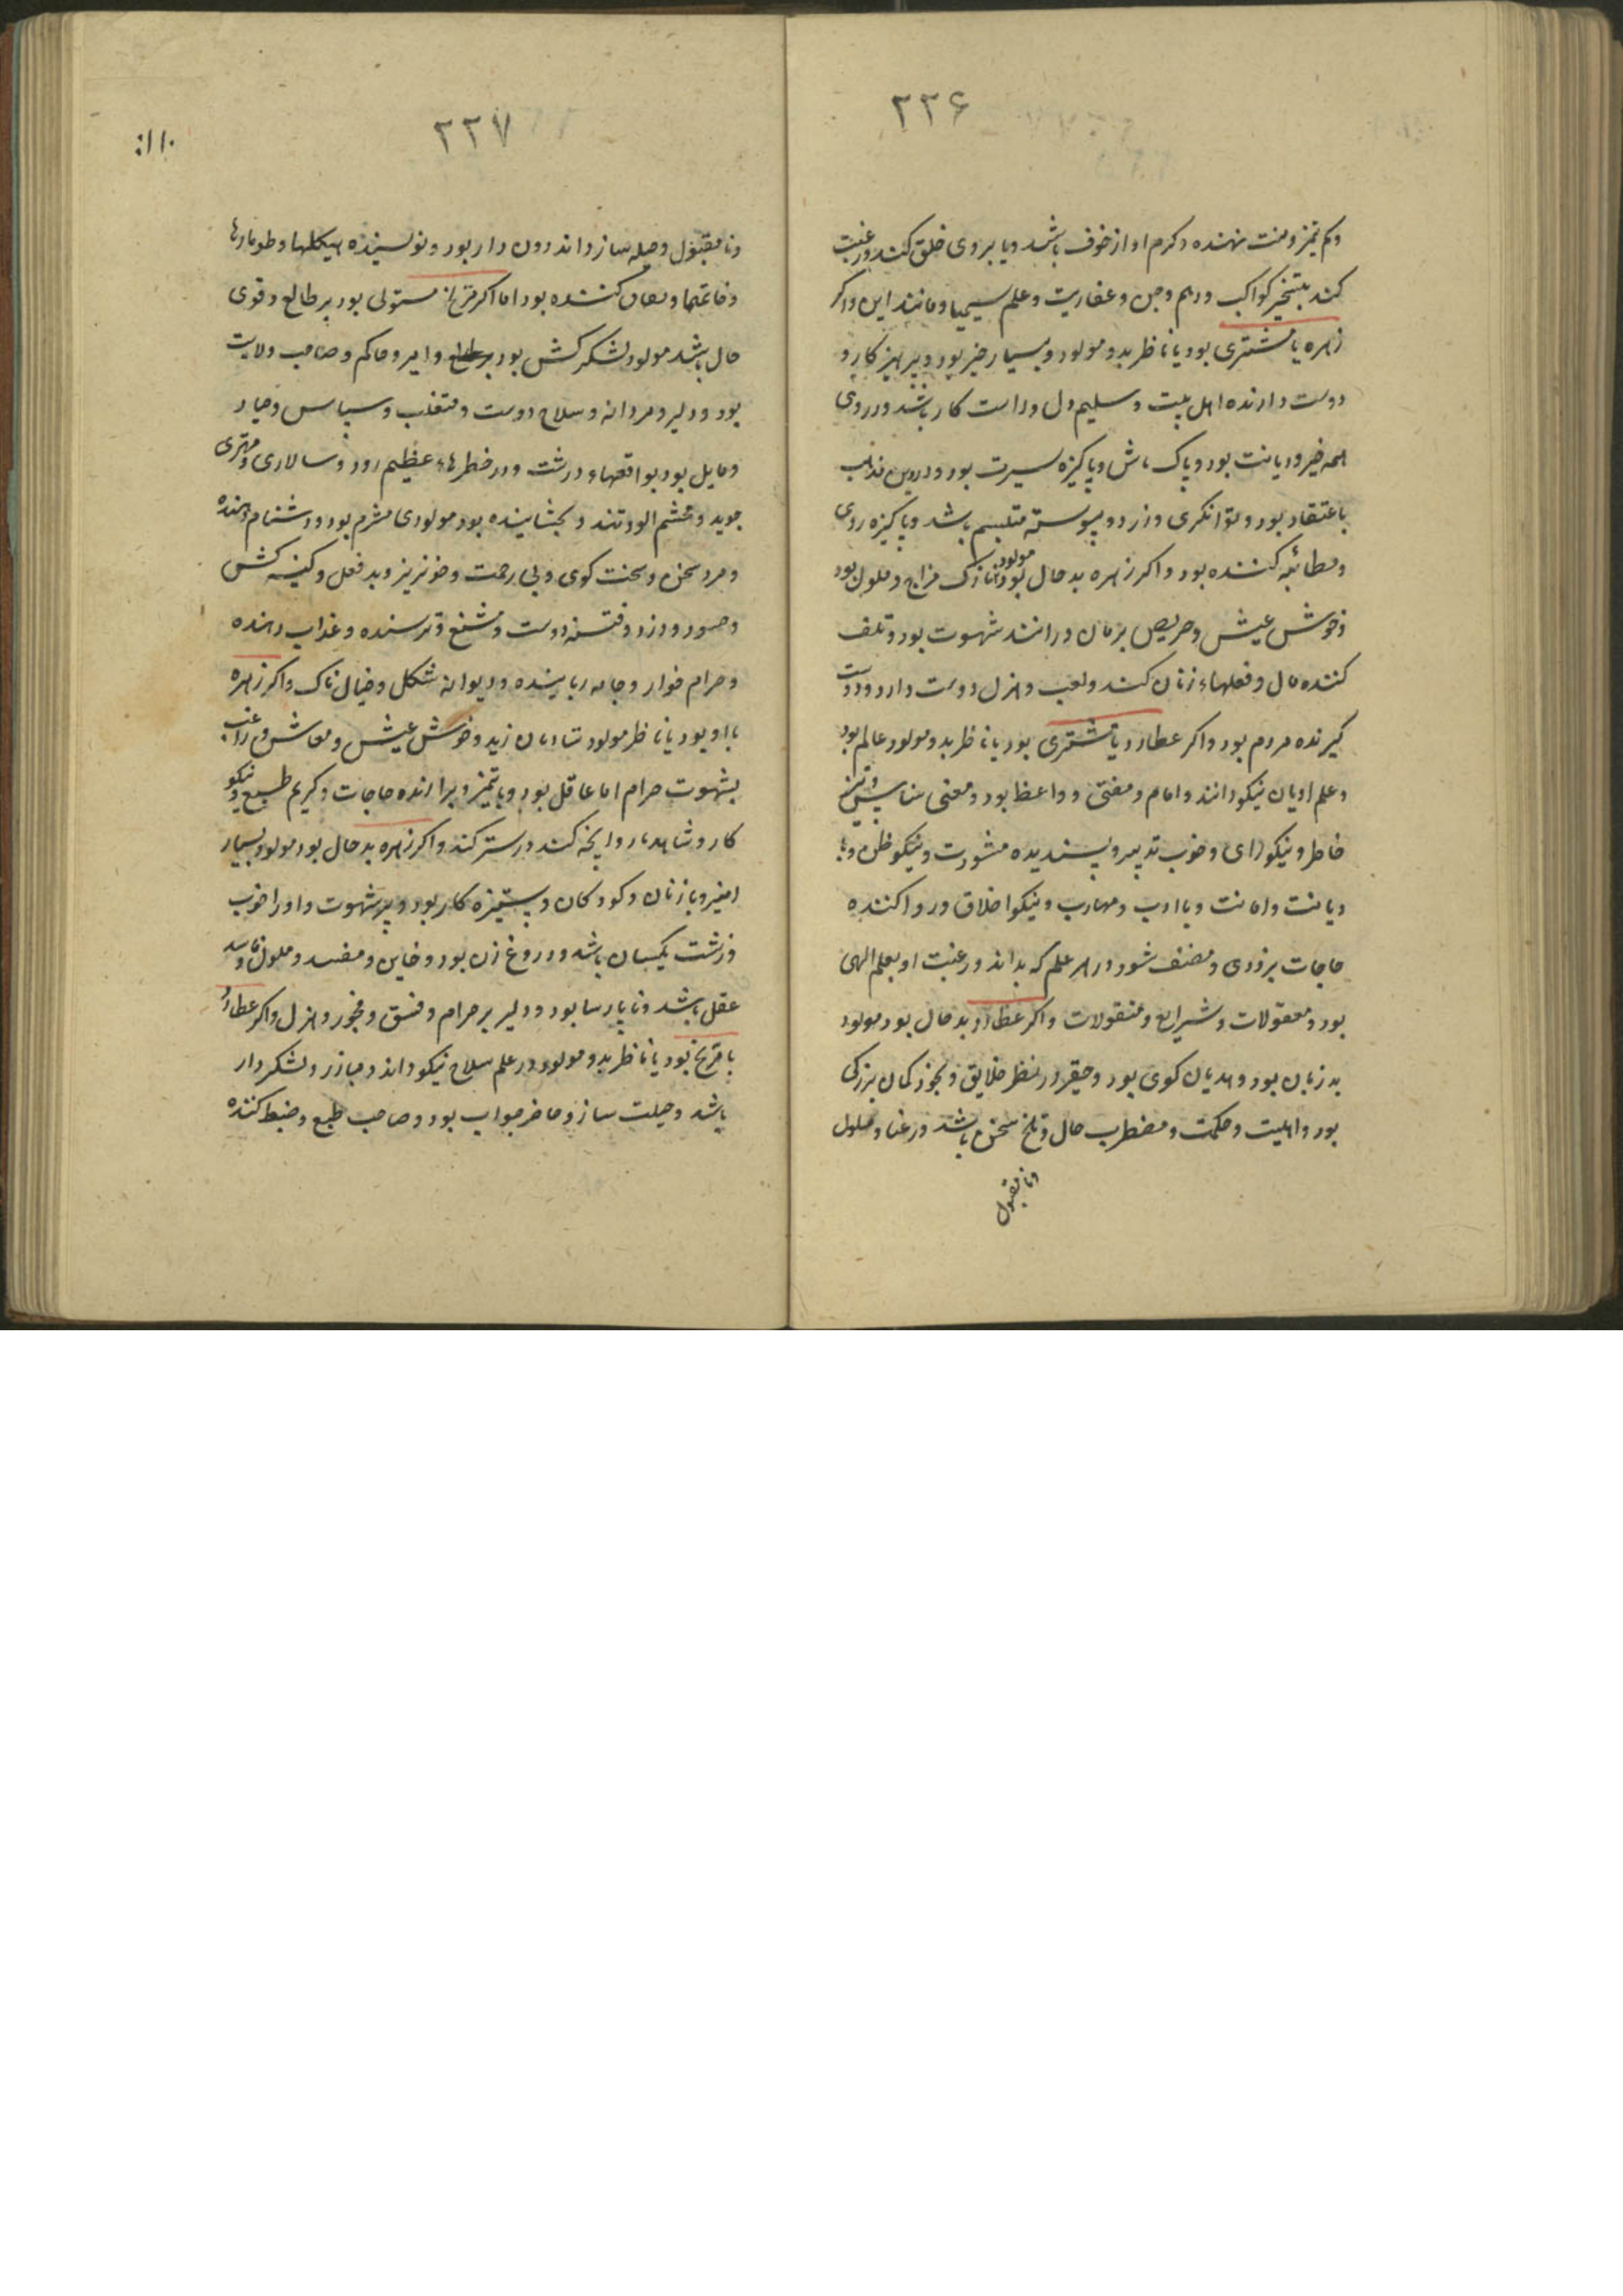 ۲۳۶
وکم تمیز و منت نهنده و کرم او از خوف باشد و یا بروی خلق کند و رغبت
کند بتسخیر کواکب و وهم و جن و عفاریت و علم سیمیا و مانند این و اکر
زهره با مشتری بود یا ناظر بدو مولود بسیار خیر بود و پرهیز کار و
دوست دارنده اهل بیت و سلیم دل و راست کار باشد و در وی
همه خیر و دیانت بود و پاک باش و پاکیزه سیرت بود و در دین مذهب
با عتقاد بود و توانکری ورزد و پیوسته متبسم باشد و پاکیزه روی
و مطائبه کننده بود و اکر زهره بد حال بود مولود نازک مزاج و ملول بود
و خوش عیش و حریص بر مان و رانند شهوت بود و تلف
کننده مال و فعلهاء زنان کند و لعب و هزل دوست دارد و دوست
کیرنده مردم بود و اکر عطارد با مشتری بود یا ناظر بدو مولود عالم بود
و علم ادیان نیکو داند و امام و مفتی و واعظ بود و معنی شناس و تیز
خاطر و نیکو رای و خوب تدبیر و پسندیده مشورت و نیکو ظن و با
دیانت و امانت و با ادب و مهذب و نیکو اخلاق و روا کننده
حاجات بزودی و مصنف شود در هر علم که بداند و رغبت او بعلم الهی
بود و معقولات و شرایع و منقولات و اکر عطارد بد حال بود مولود
بد زبان بود و هذیان کوی بود و حقیر در نظر خلایق و بخود کمان بزرکی
بود و اهلیت و حکمت و مضطرب حال و تلخ سخن باشد و رعنا و ملول
ونا مقبول
۲۳۷
۱۱۰
ونا مقبول و حیله ساز و اندرون دار بود و نویسنده هیکلها و طومارها
و خاتمها و کننده بود اما اکر مریخ مستولی بود بر طالع و قوی
حال باشد مولود لشکر کش بود و امیر و حاکم و صاحب ولایت
بود و دلیر و مردانه و سلاح دوست و متغلب و سپاس و جبار
و مایل بود بواقعهاء درشت و در خطرهاء عظیم رود و سالاری و مهتری
جوید و خشم آلود تند و بخشاینده بود مولودی مشرم بود و دشنام دهنده
و سرد سخن و سخت کوی و بی رحمت و خونریز و بد فعل و کینه کش
و حسود و دزد و فتنه دوست و مشنع و ترسنده و عذاب دهنده
و حرام خوار و جامه رباینده و دیوانه شکل و خیال ناک و اکر زهره
با او بود یا ناظر مولود شادمان زید و خوش عیش و معاشر و راغب
بشهوت حرام اما عاقل بود و با تمیز و برارنده حاجات و کریم طبع و نیکو
کار و شاهد باز و انچه کند در ستر کند و اکر زهره بد حال بود مولود بسیار
امیز و با زنان و کودکان و ستیزه کار بود و پر شهوت و او را خوب
و زشت یکسان باشد و دروغ زن بود و خاین و مفسد و ملول و فاسد
عقل باشد و ناپارسا بود و دلیر بر حرام و فسق و فجور و هزل و اکر عطارد
با مریخ بود یا ناظر بدو مولود در علم سلاح نیکو داند و مبارز و لشکر دار
باشد و حیلت ساز و حاضر جواب بود و صاحب طبع و ضبط کننده